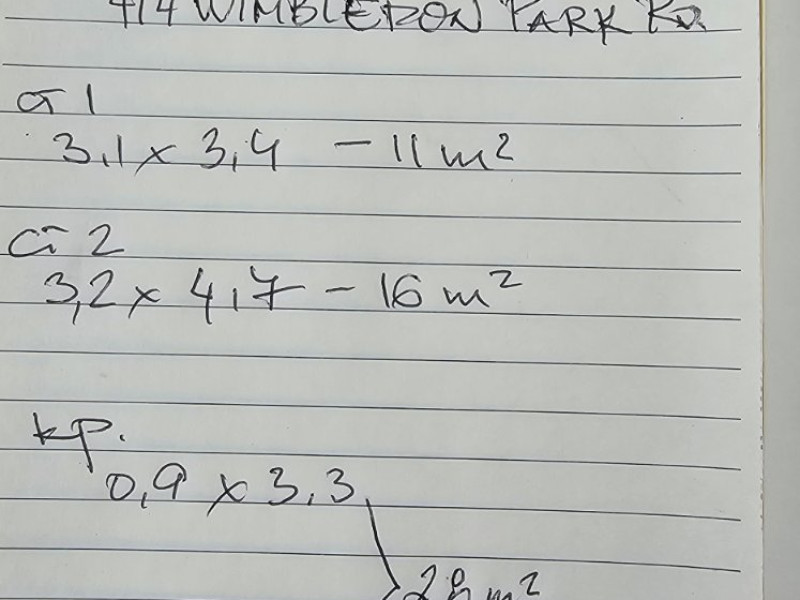 414 WIMBLEDON PARK Rd
σ 1
3,1 x 3,4 - 11 m²
σ 2
3,2 x 4,7 - 16 m²
kp.
0,9 x 3,3
28 m²